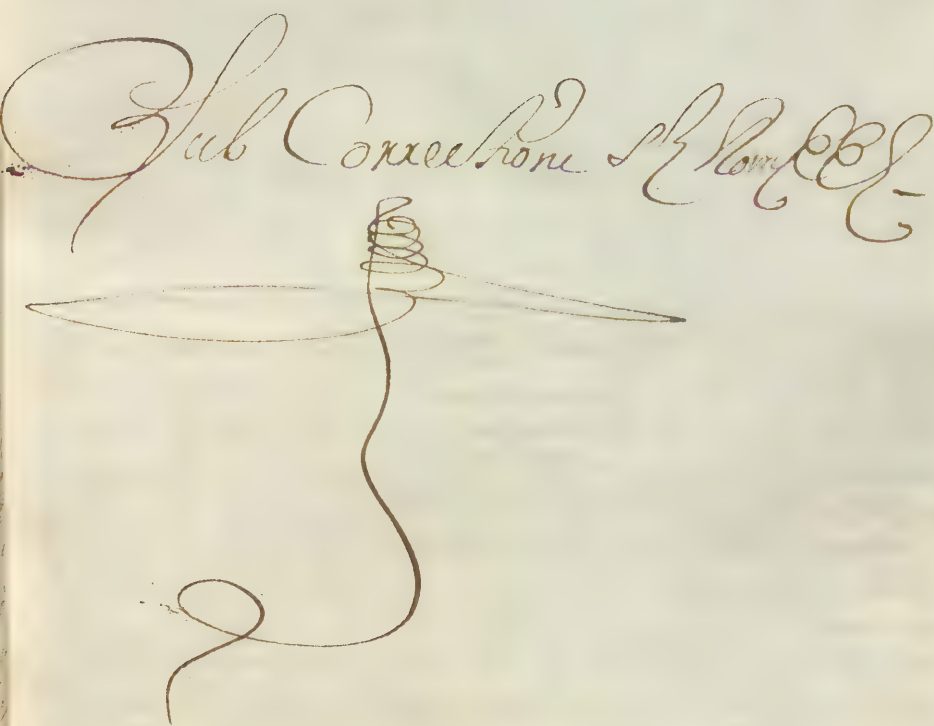 Sub Correctione S R Rom, EE